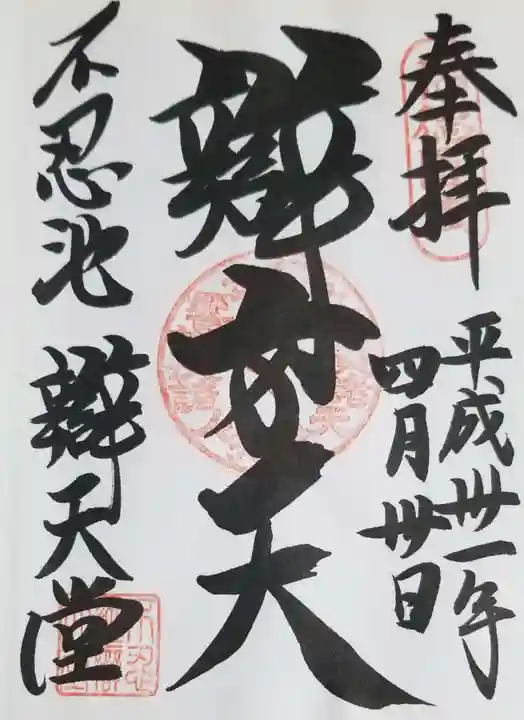 奉拝
平成卅一年
四月卅日
辨才天
不忍池
辨天堂